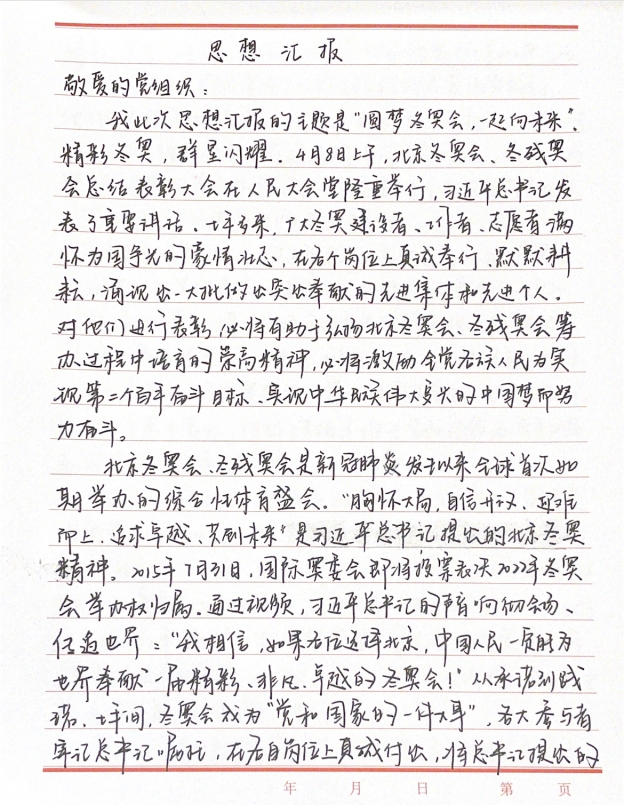 思想汇报
敬爱的党组织：
我此次思想汇报的主题是“圆梦冬奥会，一起向未来”。
精彩冬奥，群星闪耀。4月8日上午，北京冬奥会、冬残奥
会总结表彰大会在人民大会堂隆重举行，习近平总书记发
表了重要讲话。七年多来，广大冬奥建设者、工作者、志愿者满
怀为国争光的豪情壮志，在各个岗位上真诚奉行、默默耕
耘，涌现出一大批做出突出奉献的先进集体和先进个人。
对他们进行表彰，必将有助于弘扬北京冬奥会、冬残奥会筹
办过程中培育的崇高精神，必将激励全党各族人民为实
现第二个百年奋斗目标、实现中华民族伟大复兴的中国梦而努
力奋斗。
北京冬奥会、冬残奥会是新冠肺炎发生以来全球首次如
期举办的综合性体育盛会。“胸怀大局，自信开放、迎难
而上、追求卓越、共创未来”是习近平总书记提出的北京冬奥
精神。2015年7月31日，国际奥委会即将投票表决2022年冬奥
会举办权归属。通过视频，习近平总书记的声音响彻会场、
传遍世界：“我相信，如果各位选择北京，中国人民一定能为
世界奉献一届精彩、非凡、卓越的冬奥会！”从承诺到践
诺，七年间，冬奥会成为“党和国家的一件大事”，各大参与者
牢记总书记嘱托，在各自岗位上真诚付出，将总书记提出的
年 月 日 第 页